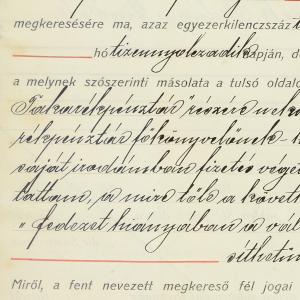 megkeresésére ma, azaz egyezerkilenczszáz
hó tizennyolczadik napján, d
a melynek szószerinti másolata a tulsó oldalo
Takarékpénztár" részére nek
rékpénztár főkönyvelőnek
saját irodámban fizetés vége
tattam, a mire tőle a követk
„fedezet hiányában a vál
sithetm
Miről, a fent nevezett megkereső fél jogai